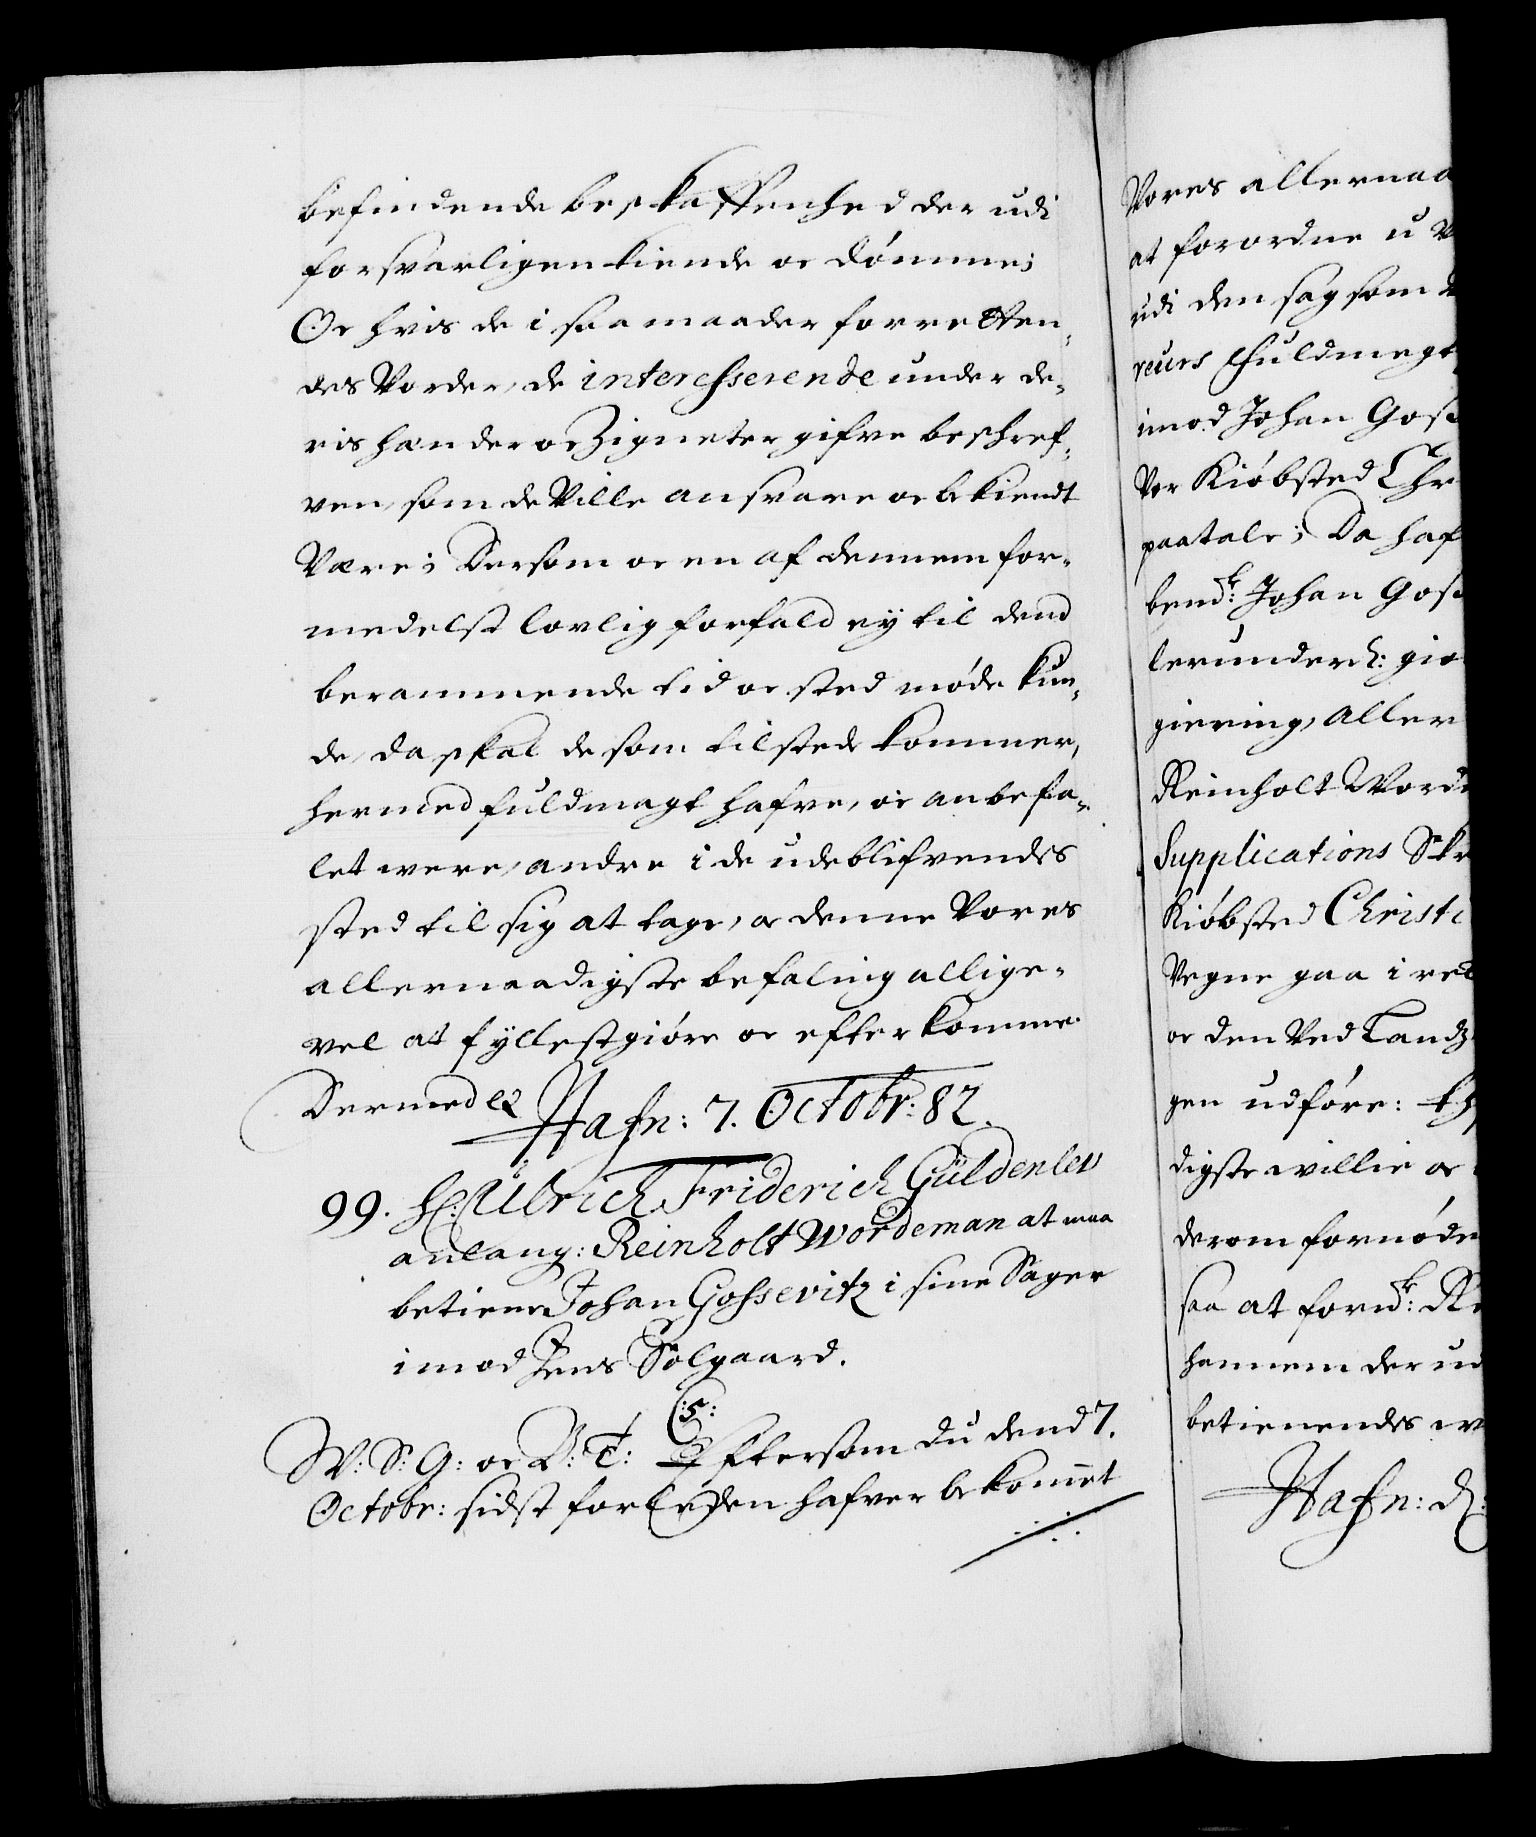 befindende beskaffenhed der udi
forsvarligen kiende oc dömme;
Oc hvis de i saa maader forretten,
des vorder, de interesserende under de,
ris hænder oc Zigneter gifve beschref,
ven, som de ville ansvare oc bekiendt
være; Dersom oc en af dennem for,
medelst lovlig forfald ey til dend
berammende tid oc sted møde kun,
de, da skal de som tilstede kommer,
hermed fuldmagt hafve, oc anbefa,
let were, andre i de udeblifvendes
sted til sig at tage, oc denne Vores
allernaadigste befaling allige,
vel at fyllestgiöre oc efterkomme
Dermed &c. Hafn: 7. Octobr: 82.
99. H: Ulrich Friderich Güldenlew
anlang: Reinholt Wordeman at maa
betiene Johan Gossevitz i sine Sager
imod Jens Solgaard.
C:5:
W: S: G: oc B: T: Eftersom du dend 7.
Octobr: sidst forleden hafver bekommet
Vores allernaa
at forordne u
udi den sag som
reurs fuldmegt
imod Johan Goss
Vor Kiöbsted Chr
paatale; Da haf
bemd.te Johan Goss
lerunderd: gie
giering, aller
Reinholt Word
Supplications Skr
Kiöbsted Christi
Vegne gaa i ret
oc den ved Landz
gen udföre: th
digste willie oc
derom fornøden
saa at formd.te Re
hannem der ud
betienendes w
Hafn: d: